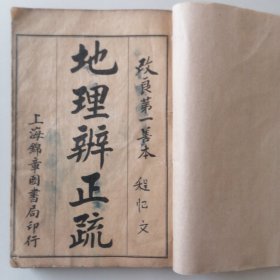 改良第一善本
程忆文
地理辨正疏
上海錦章圖書局印行